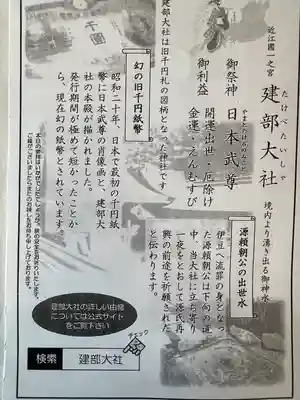 近江國一之宮
建部大社
たけべたいしゃ
御祭神 日本武尊
やまとたけるのみこと
御利益
開運出世・厄除け
金運・えんむすび
建部大社は旧千円札の図柄となった神社です
千圓
幻の旧千円紙幣
昭和二十年、日本で最初の千円紙
幣に日本武尊の肖像画と、建部大
社の本殿が描かれました。
発行期間が極めて短かったことか
ら、現在幻の紙幣とされています
境内より湧き出る御神水
源頼朝公の出世水
伊豆へ流罪の身となっ
た源頼朝公は下向の道
中、当大社に立ち寄り
一夜をとおして源氏再
興の前途を祈願された
と伝わります。
建部大社の詳しい由緒
については公式サイト
をご覧下さい
チェック
検索 建部大社